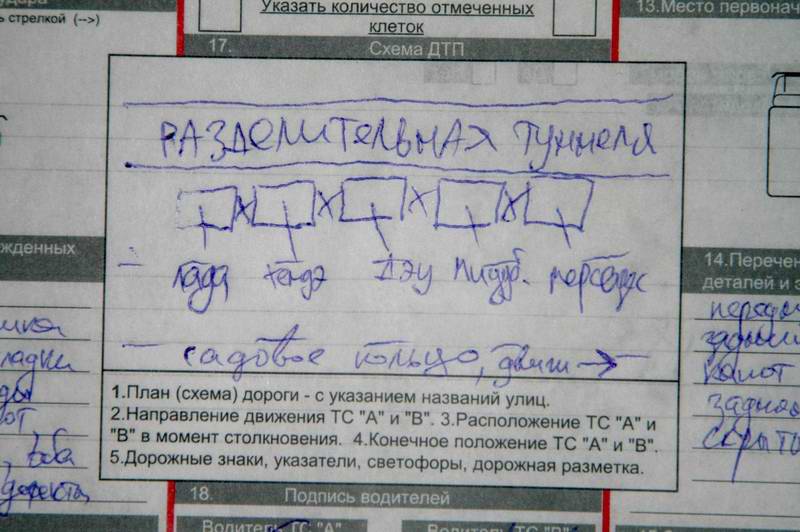 стрелкой (-->)
Указать количество отмеченных
клеток
13.Место первонач
17. Схема ДТП
РАЗДЕЛИТЕЛЬНАЯ туннеля
х х х х
лада хендэ Дэу Мицуб. мерседес
садовое кольцо, движ →
1.План (схема) дороги - с указанием названий улиц.
2.Направление движения ТС "А" и "В". 3.Расположение ТС "А" и
"В" в момент столкновения. 4.Конечное положение ТС "А" и "В".
5.Дорожные знаки, указатели, светофоры, дорожная разметка.
18. Подпись водителей
Водитель ТС "А" Водитель ТС "В"
жденных
14.Перечен
деталей и э
капот
скрыты